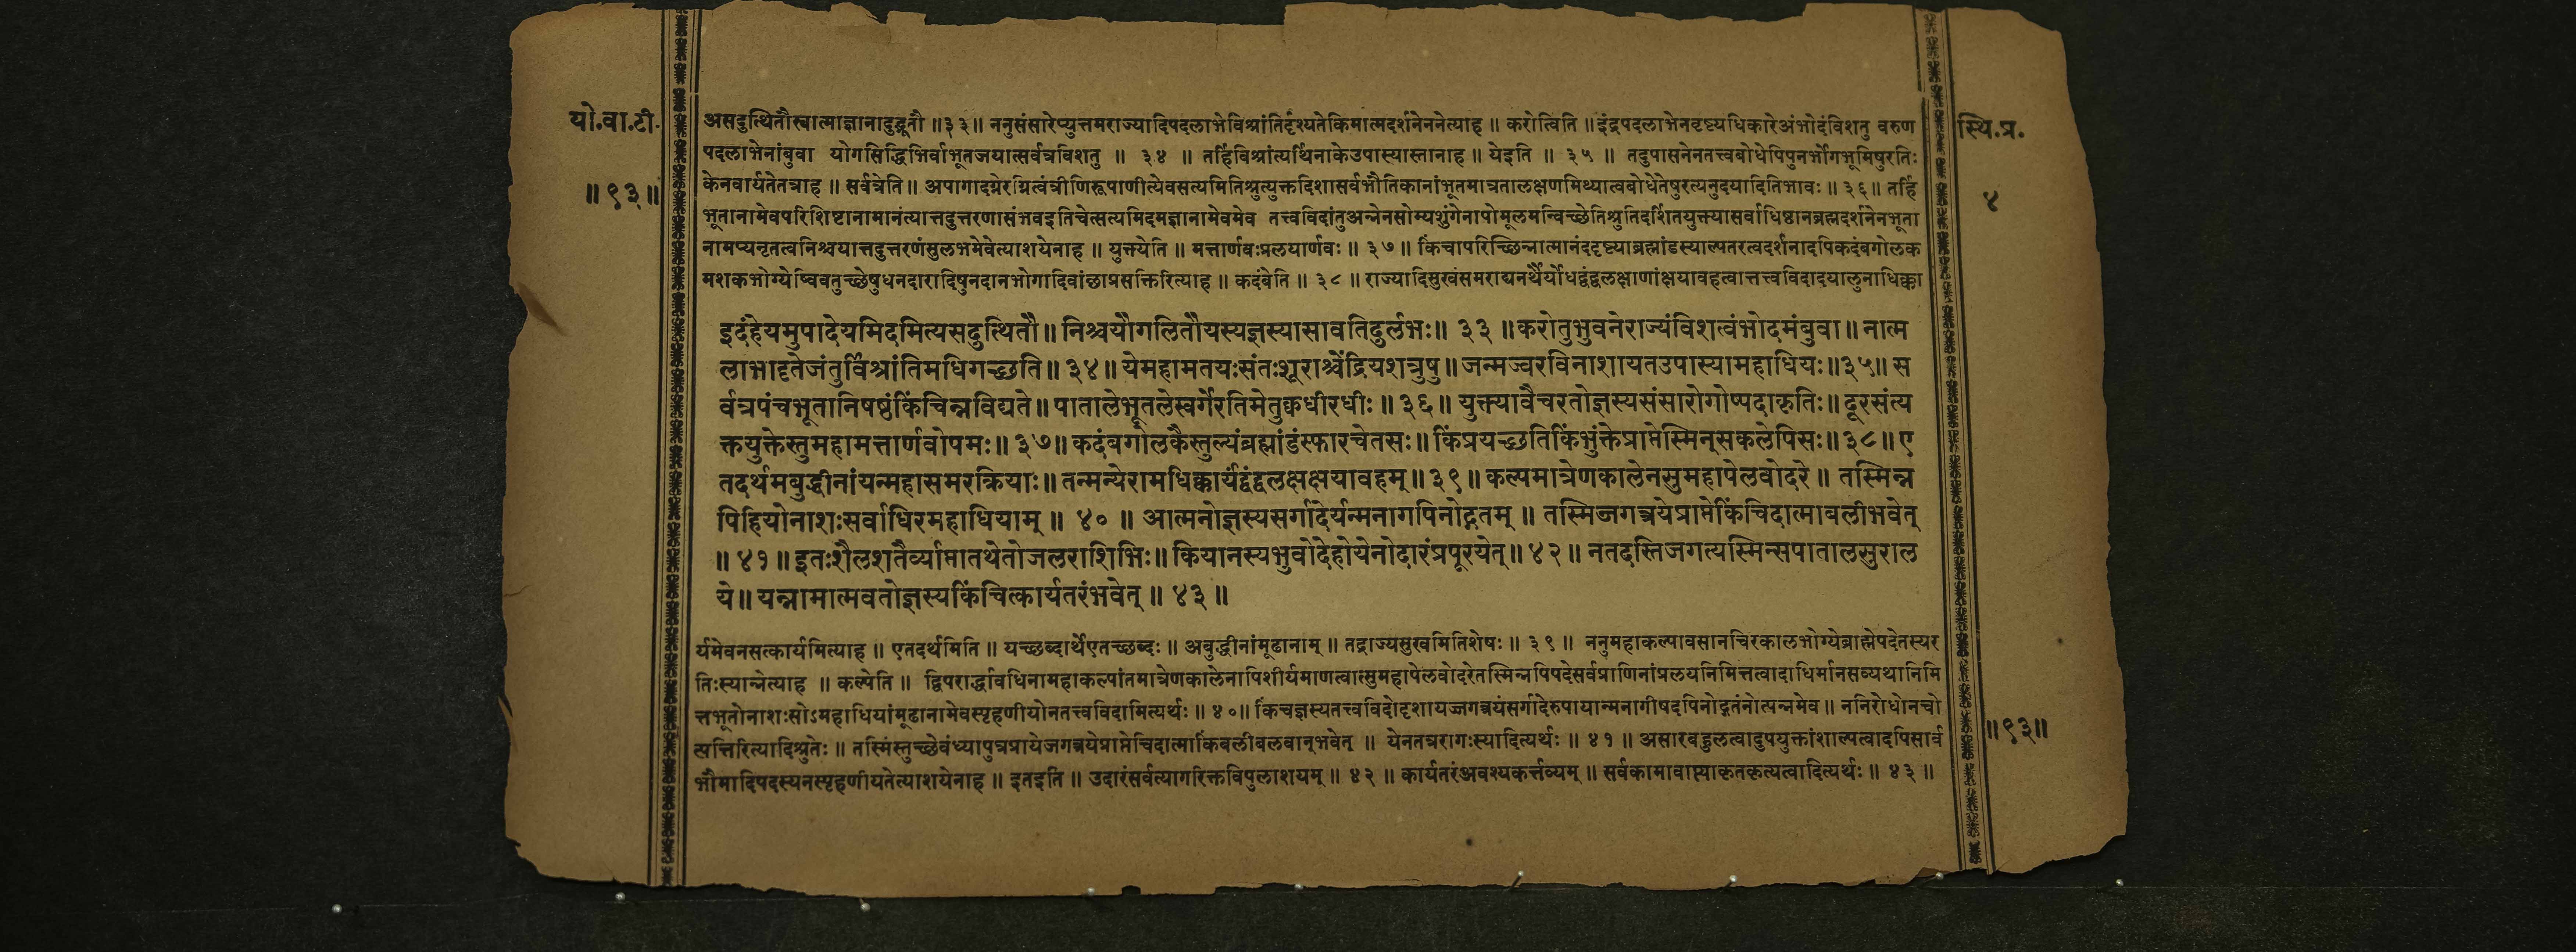 यो.वा.टी.
॥९३॥
स्थि.प्र.
४
असदुत्थितौस्वात्माज्ञानादुद्भूतौ ॥३३॥ ननुसंसारेप्युत्तमराज्यादिपदलाभेविश्रांतिर्दृश्यतेकिमात्मदर्शनेननेत्याह ॥ करोत्विति ॥ इंद्रपदलाभेनवृष्ट्यधिकारेअंभोदंविशतु वरुण
पदलाभेनांबुवा योगसिद्धिभिर्वाभूतजयात्सर्वत्रविशतु ॥ ३४ ॥ तर्हिविश्रांत्यर्थिनाकेउपास्यास्तानाह ॥ येइति ॥ ३५ ॥ तदुपासनेनतत्त्वबोधेपिपुनर्भोगभूमिषुरतिः
केनवार्यतेतत्राह ॥ सर्वत्रेति ॥ अपागादग्नेरग्नित्वंत्रीणिरूपाणीत्येवसत्यमितिश्रुत्युक्तदिशासर्वभौतिकानांभूतमात्रतालक्षणमिथ्यात्वबोधेतेषुरत्यनुदयादितिभावः ॥ ३६ ॥ तर्हि
भूतानामेवपरिशिष्टानामानंत्यात्तदुत्तरणासंभवइतिचेत्सत्यमिदमज्ञानामेवमेव तत्त्वविदांतुअन्नेनसोम्यशुंगेनापोमूलमन्विच्छेतिश्रुतिदर्शितयुक्त्यासर्वाधिष्ठानब्रह्मदर्शनेनभूता
नामप्यनृतत्वनिश्चयात्तदुत्तरणंसुलभमेवेत्याशयेनाह ॥ युक्त्येति ॥ मत्तार्णवःप्रलयार्णवः ॥ ३७ ॥ किंचापरिच्छिन्नात्मानंददृष्ट्याब्रह्मांडस्याल्पतरत्वदर्शनादपिकदंबगोलक
मशकभोग्येष्विवतुच्छेषुधनदारादिषुनदानभोगादिवांछाप्रसक्तिरित्याह ॥ कदंबेति ॥ ३८ ॥ राज्यादिसुखंसमराद्यनर्थैर्योधद्वंद्वलक्षाणांक्षयावहत्वात्तत्त्वविदादयालुनाधिक्का
इदंहेयमुपादेयमिदमित्यसदुत्थितौ ॥ निश्चयौगलितौयस्यज्ञस्यासावतिदुर्लभः ॥ ३३ ॥ करोतुभुवनेराज्यंविशत्वंभोदमंबुवा ॥ नात्म
लाभादृतेजंतुर्विश्रांतिमधिगच्छति ॥ ३४ ॥ येमहामतयःसंतःशूराश्चेंद्रियशत्रुषु ॥ जन्मज्वरविनाशायतउपास्यामहाधियः ॥३५॥ स
र्वत्रपंचभूतानिषष्ठंकिंचिन्नविद्यते ॥ पातालेभूतलेस्वर्गेरतिमेतुक्वधीरधीः ॥ ३६ ॥ युक्त्यावैचरतोज्ञस्यसंसारोगोष्पदाकृतिः ॥ दूरसंत्य
क्तयुक्तेस्तुमहामत्तार्णवोपमः ॥ ३७ ॥ कदंबगोलकैस्तुल्यंब्रह्मांडंस्फारचेतसः ॥ किंप्रयच्छतिकिंभुंक्तेप्राप्तेस्मिन्सकलेपिसः ॥ ३८ ॥ ए
तदर्थमबुद्धीनांयन्महासमरक्रियाः ॥ तन्मन्येरामधिक्कार्यंद्वंद्वलक्षक्षयावहम् ॥ ३९ ॥ कल्पमात्रेणकालेनसुमहापेलवोदरे ॥ तस्मिन्न
पिहियोनाशःसर्वाधिरमहाधियाम् ॥ ४० ॥ आत्मनोज्ञस्यसर्गादेर्यन्मनागपिनोद्गतम् ॥ तस्मिञ्जगत्रयेप्राप्तेकिंचिदात्माबलीभवेत्
॥ ४१ ॥ इतःशैलशतैर्व्याप्तातथेतोजलराशिभिः ॥ कियानस्यभुवोदेहोयेनोदारंप्रपूरयेत् ॥ ४२ ॥ नतदस्तिजगत्यस्मिन्सपातालसुराल
ये ॥ यन्नामात्मवतोज्ञस्यकिंचित्कार्यतरंभवेत् ॥ ४३ ॥
र्यमेवनसत्कार्यमित्याह ॥ एतदर्थमिति ॥ यच्छब्दार्थेएतच्छब्दः ॥ अबुद्धीनांमूढानाम् ॥ तद्राज्यसुखमितिशेषः ॥ ३९ ॥ ननुमहाकल्पावसानचिरकालभोग्येब्राह्मेपदेतस्यर
तिःस्यान्नेत्याह ॥ कल्पेति ॥ द्विपरार्द्धावधिनामहाकल्पांतमात्रेणकालेनापिशीर्यमाणत्वात्सुमहापेलवोदरेतस्मिन्नपिपदेसर्वप्राणिनांप्रलयनिमित्तत्वादाधिर्मानसव्यथानिमि
त्तभूतोनाशःसोऽमहाधियांमूढानामेवस्पृहणीयोनतत्त्वविदामित्यर्थः ॥ ४० ॥ किंचज्ञस्यतत्त्वविदोदृशायज्जगत्रयंसर्गादेरुपायान्मनागीषदपिनोद्गतंनोत्पन्नमेव ॥ ननिरोधोनचो
त्पत्तिरित्यादिश्रुतेः ॥ तस्मिंस्तुच्छेवंध्यापुत्रप्रायेजगत्रयेप्राप्तेचिदात्माकिंबलीबलवान्भवेत् ॥ येनतत्ररागःस्यादित्यर्थः ॥ ४१ ॥ असारबहुलत्वादुपयुक्तांशाल्पत्वादपिसार्व
भौमादिपदस्यनस्पृहणीयतेत्याशयेनाह ॥ इतइति ॥ उदारंसर्वत्यागरिक्तविपुलाशयम् ॥ ४२ ॥ कार्यतरंअवश्यकर्त्तव्यम् ॥ सर्वकामावाप्त्याकृतकृत्यत्वादित्यर्थः ॥ ४३ ॥
॥९३॥